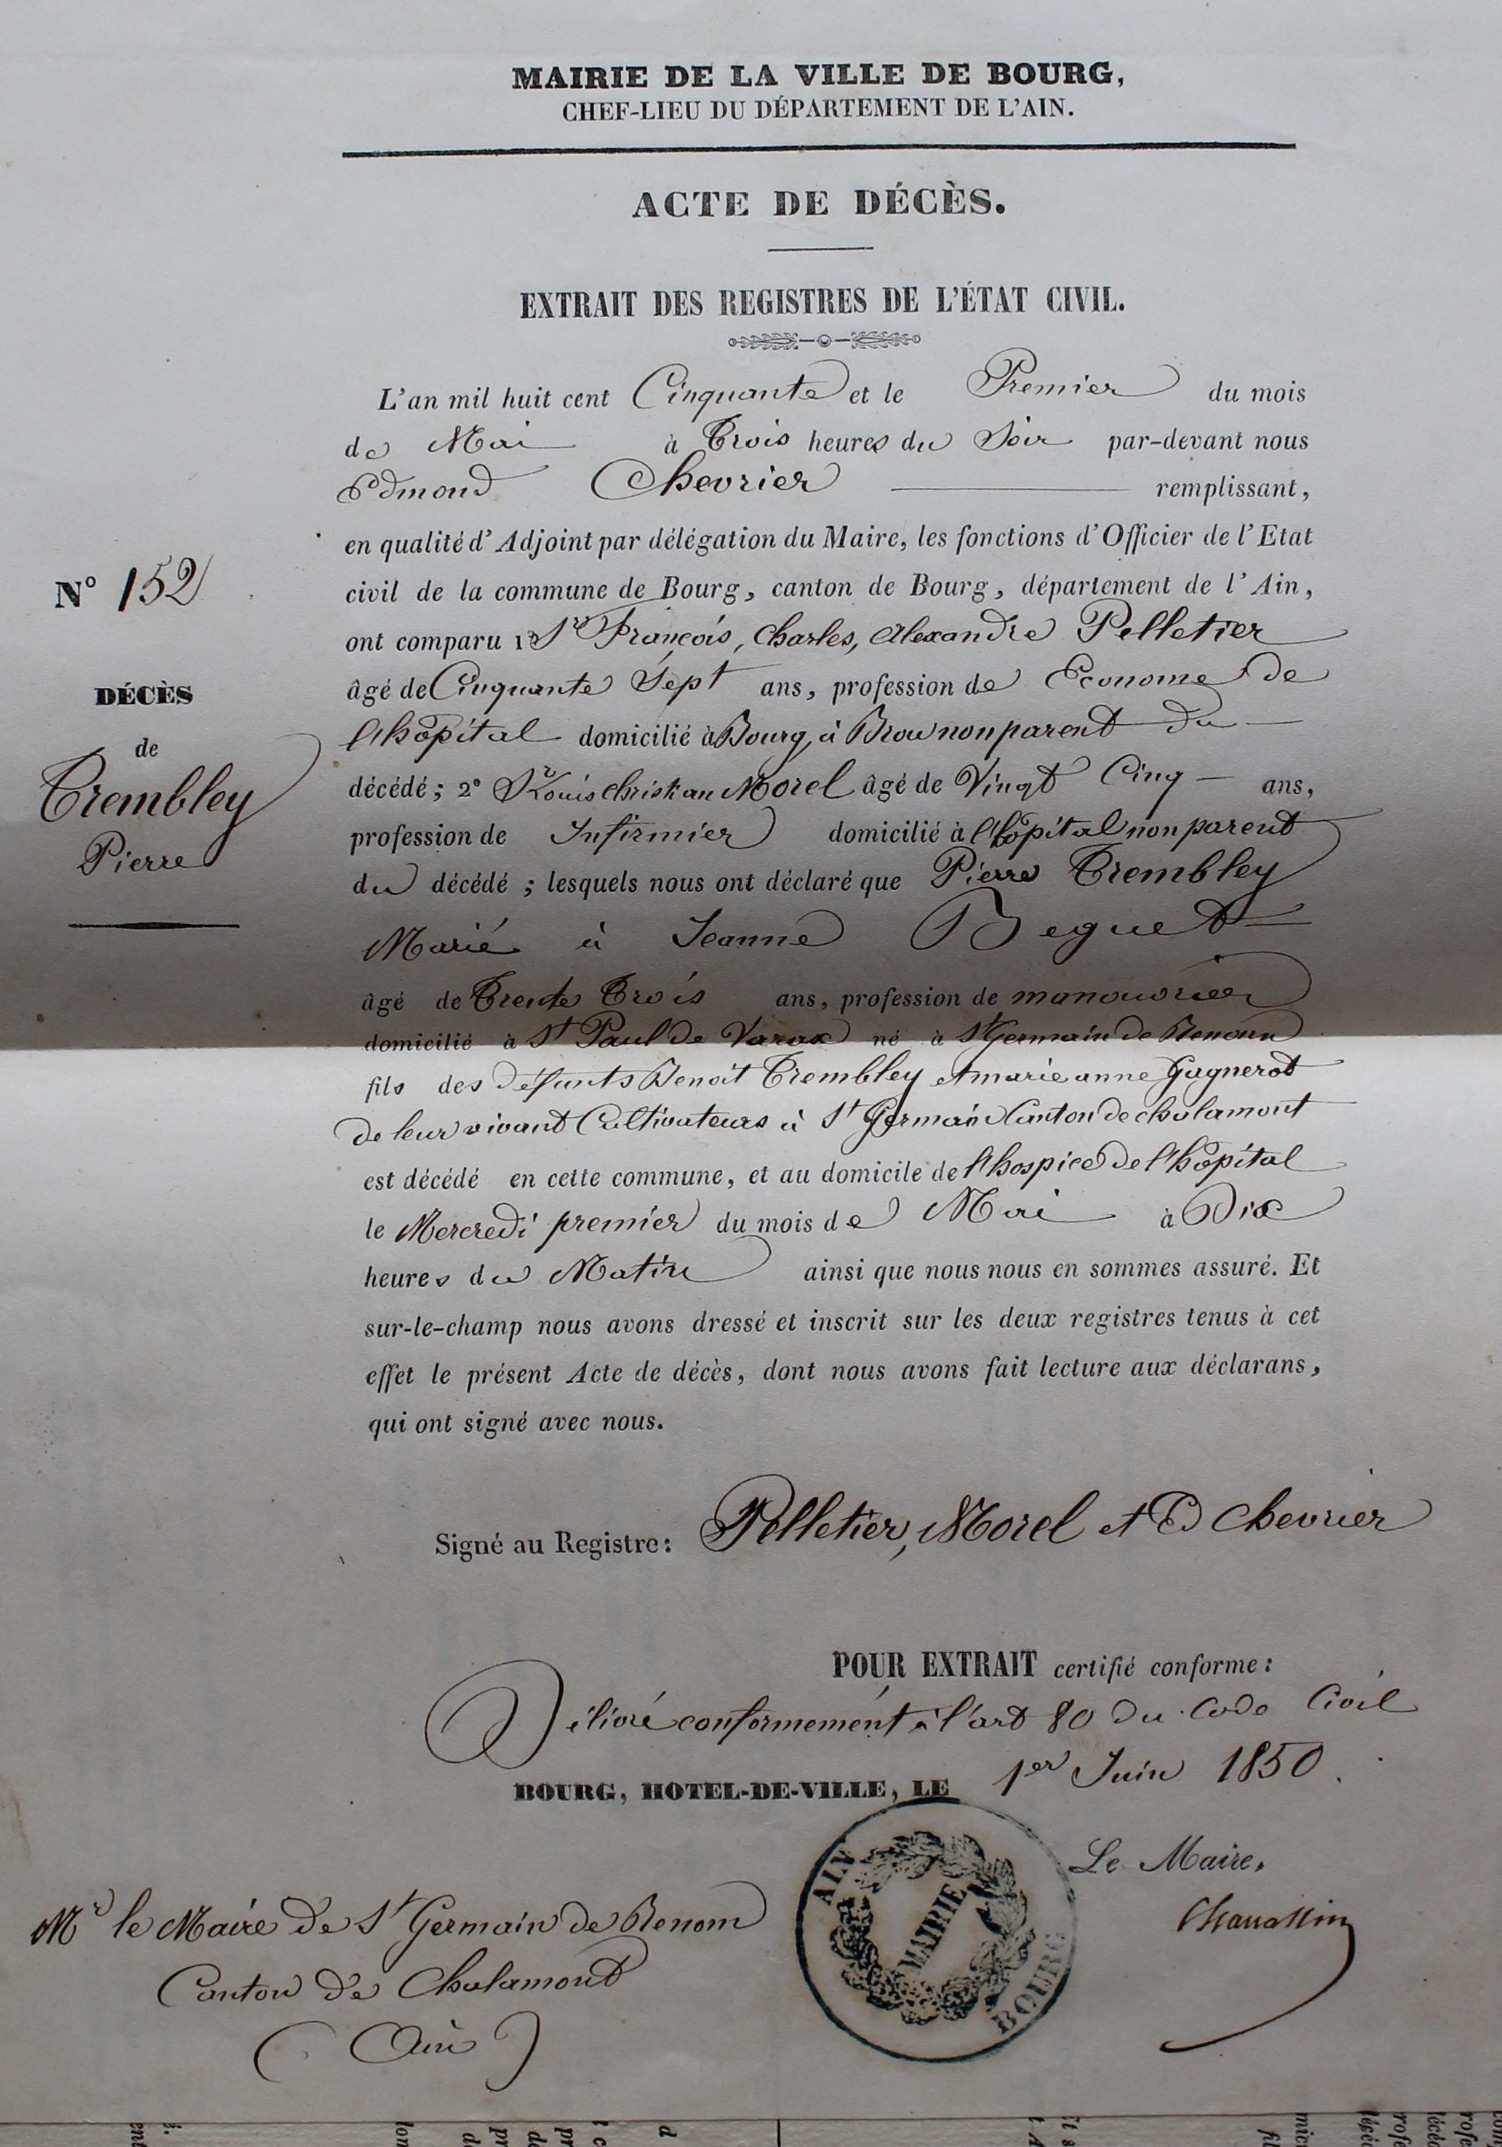 MAIRIE DE LA VILLE DE BOURG,
CHEF-LIEU DU DÉPARTEMENT DE L'AIN.
ACTE DE DÉCÈS.
EXTRAIT DES REGISTRES DE L'ÉTAT CIVIL.
L'an mil huit cent Cinquante et le Premier du mois
de Mai à Trois heures du Soir par-devant nous
Edmond Chevrier remplissant,
en qualité d'Adjoint par délégation du Maire, les fonctions d'Officier de l'Etat
civil de la commune de Bourg, canton de Bourg, département de l'Ain,
N° 152
ont comparu 1° Sr François, Charles, Alexandre Pelletier
âgé de Cinquante Sept ans, profession de Econome de
DÉCÈS
l'hôpital domicilié à Bourg, à Brou non parent du
de
décédé; 2° Sr Louis christian Morel âgé de Vingt Cinq ans,
Trembley
profession de Infirmier domicilié à l'hôpital non parent
Pierre
du décédé; lesquels nous ont déclaré que Pierre Trembley
Marié à Jeanne Beguet
âgé de Trente Trois ans, profession de manouvrier
domicilié à St Paul de Varax né à St Germain de Renom
fils des défunts Benoit Trembley et marie anne Gagnerot
de leur vivant Cultivateurs à St Germain Canton de chalamont
est décédé en cette commune, et au domicile de l'hospice de l'hôpital
le Mercredi premier du mois de Mai à Dix
heures du Matin ainsi que nous nous en sommes assuré. Et
sur-le-champ nous avons dressé et inscrit sur les deux registres tenus à cet
effet le présent Acte de décès, dont nous avons fait lecture aux déclarans,
qui ont signé avec nous.
Signé au Registre: Pelletier, Morel et Ed Chevrier
POUR EXTRAIT certifié conforme:
Délivré conformément à l'art 80 du Code Civil
BOURG, HOTEL-DE-VILLE, LE 1er Juin 1850.
Le Maire,
AIN
MAIRIE
BOURG
Mr le Maire de St Germain de Renom
Canton de Chalamont
(Ain)